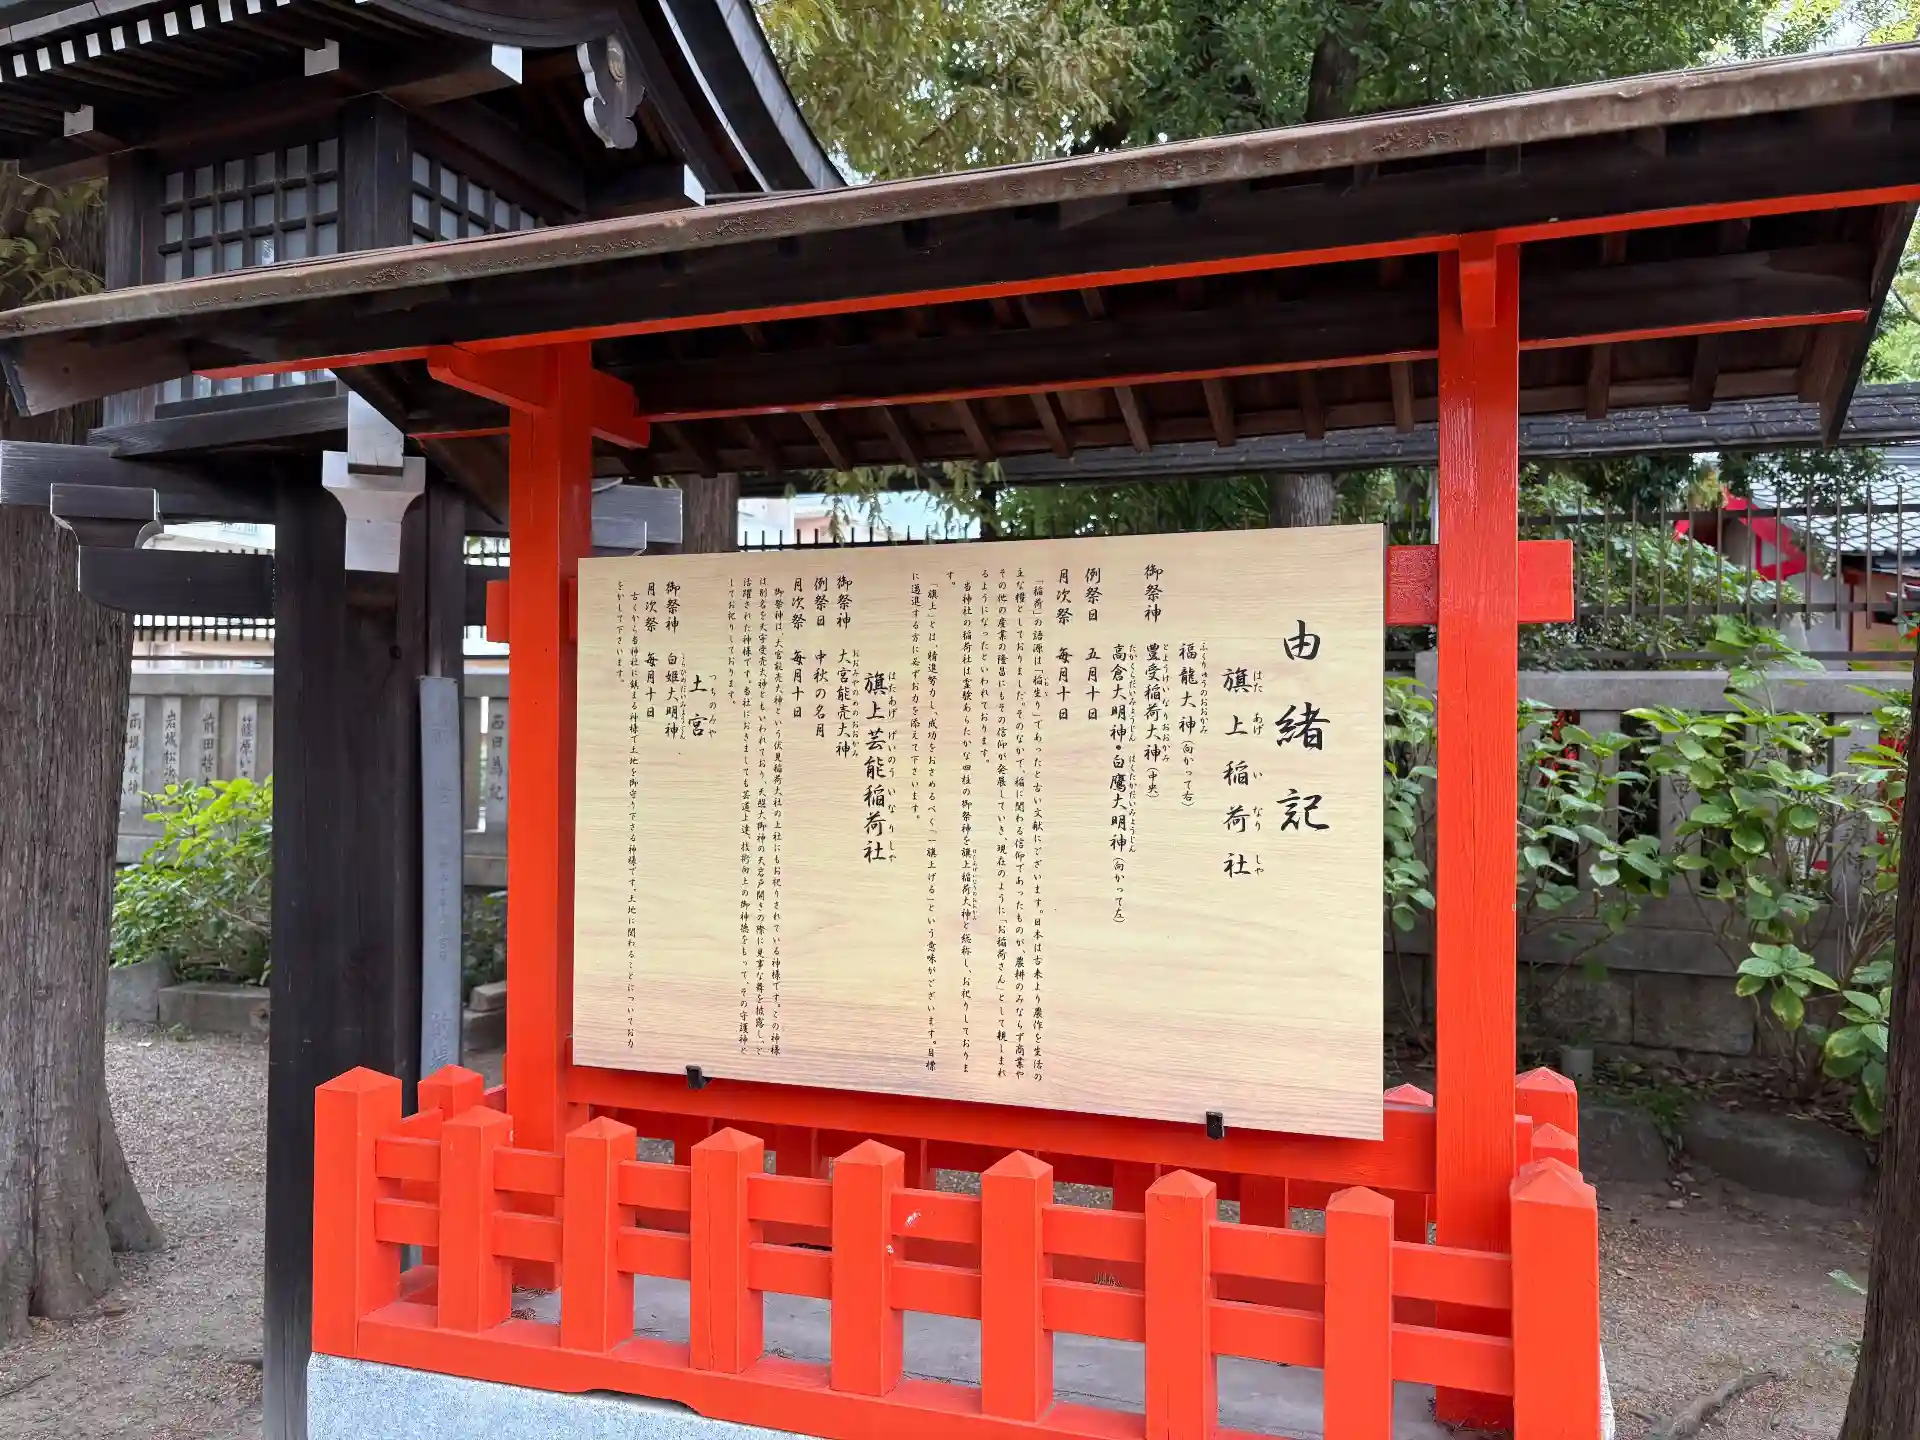 由緒記
旗上稲荷社
はた あげ い なり しゃ
御祭神
福龍大神（向かって右）
ふくりゅうのおおかみ
豊受稲荷大神（中央）
とようけいなりおおかみ
高倉大明神・白鷹大明神（向かって左）
たかくらだいみょうじん はくたかだいみょうじん
例祭日 五月十日
月次祭 毎月十日
「稲荷」の語源は「稲生り」であったと古い文献にございます。日本は古来より農作を生活の
主な糧としておりました。そのなかで、稲に関わる信仰であったものが、農耕のみならず商業や
その他の産業の隆昌にもその信仰が発展していき、現在のように「お稲荷さん」として親しまれ
るようになったといわれております。
当神社の稲荷社は霊験あらたかな四柱の御祭神を旗上稲荷大神と総称し、お祀りしておりま
す。
「旗上」とは、精進努力し、成功をおさめるべく「一旗上げる」という意味がございます。目標
に邁進する方に必ずお力を添えて下さいます。
旗上芸能稲荷社
はたあげ げいのう いなり しゃ
御祭神 大宮能売大神
おおみやのめのおおかみ
例祭日 中秋の名月
月次祭 毎月十日
御祭神は、大宮能売大神という伏見稲荷大社の上社にもお祀りされている神様です。この神様
は別名を天宇受売大神ともいわれており、天照大御神の天岩戸開きの際に見事な舞を披露し、ご
活躍された神様です。当社におきましても芸道上達、技術向上の御神徳をもって、その守護神と
してお祀りしております。
土宮
つちのみや
御祭神 白姫大明神
しらひめだいみょうじん
月次祭 毎月十日
古くから当神社に鎮まる神様で土地を御守り下さる神様です。土地に関わることについてお力
をかして下さいます。
西日為記
篠原い
前田
岩城松次
雨堤義雄